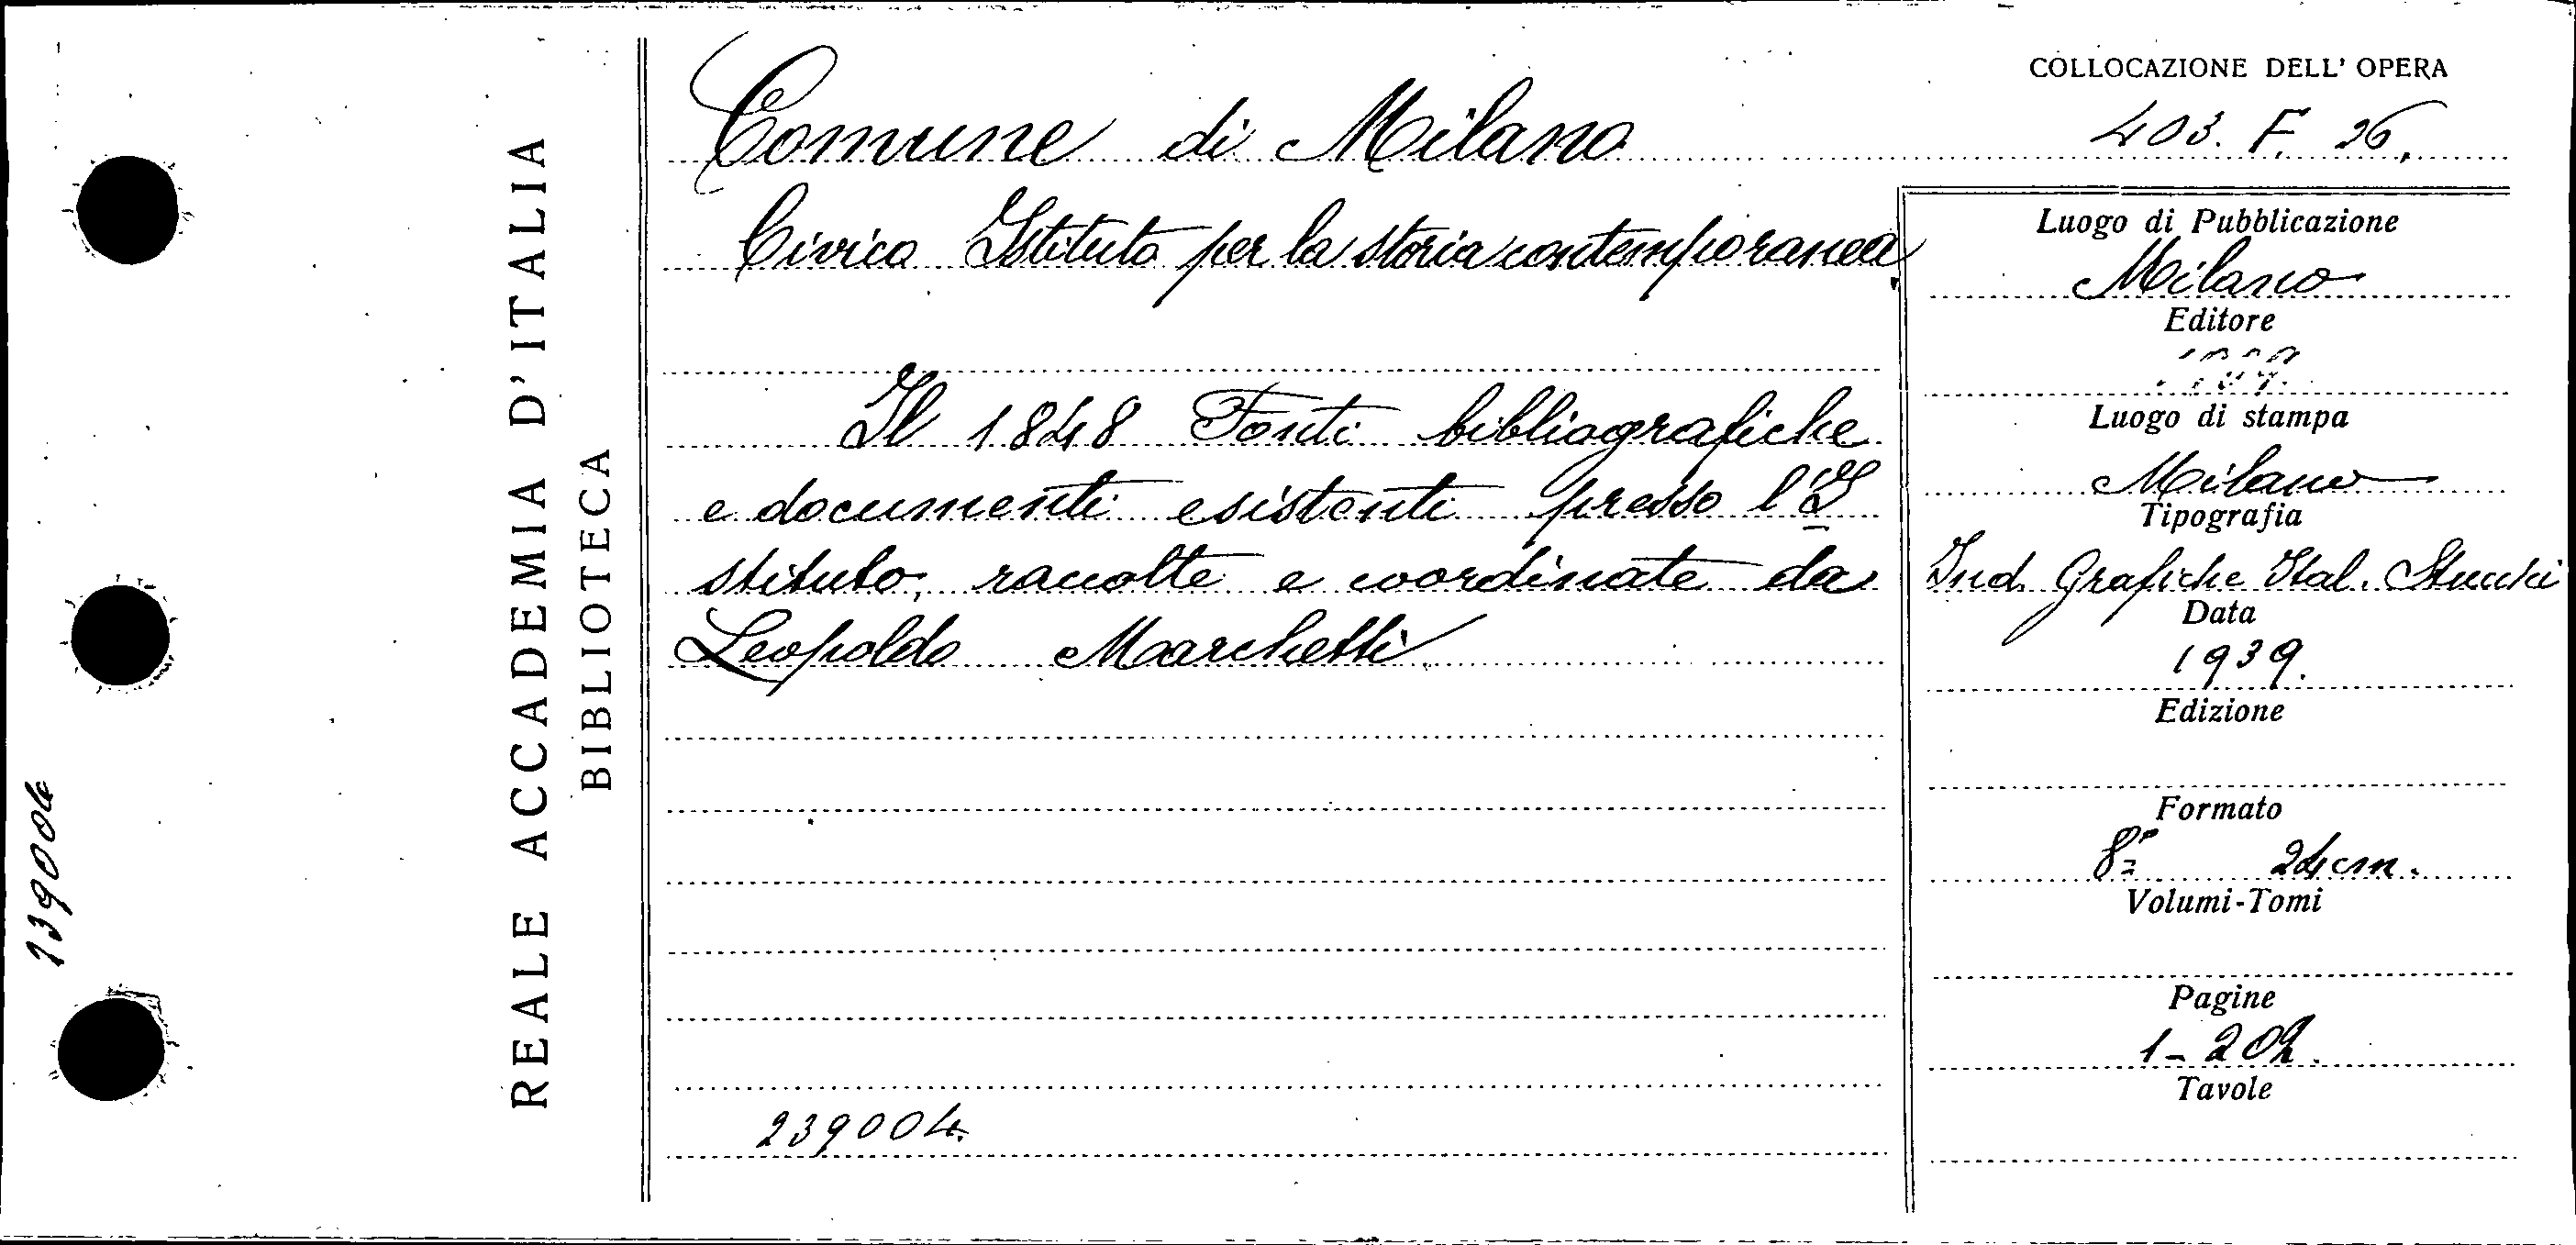 REALE ACCADEMIA D'ITALIA
BIBLIOTECA
239004
Comune di Milano
Civico Istituto per la storia contemporanea
Il 1848 Fonti bibliografiche
e documenti esistenti presso l'I
stituto, raccolte e coordinate da
Leopoldo Marchetti
239004
COLLOCAZIONE DELL' OPERA
403. F. 26.
Luogo di Pubblicazione
Milano
Editore
Luogo di stampa
Milano
Tipografia
Ind. Grafiche Ital. Stucchi
Data
1939.
Edizione
Formato
8° 24 cm.
Volumi-Tomi
Pagine
1-202.
Tavole